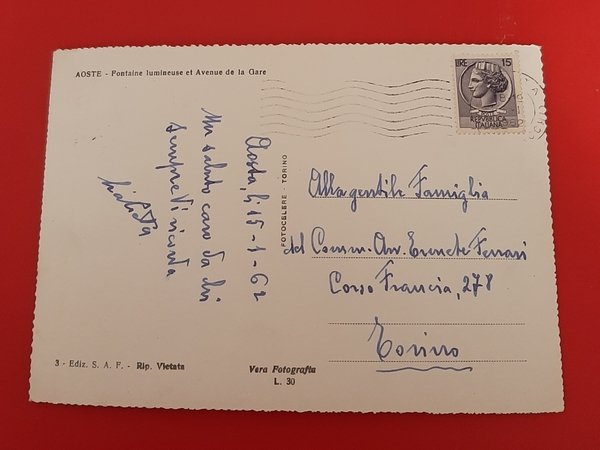 AOSTE - Fontaine lumineuse et Avenue de la Gare
Aosta, li 15-1-62
Un saluto caro da chi
sempre Vi ricorda
LIRE 15
REPVBBLICA
ITALIANA
FOTOCELERE - TORINO
Alla gentile Famiglia
del Comm. Avv. Ernesto Ferrari
Corso Francia, 278
Torino
3 - Ediz. S. A. F. - Rip. Vietata
Vera Fotografia
L. 30